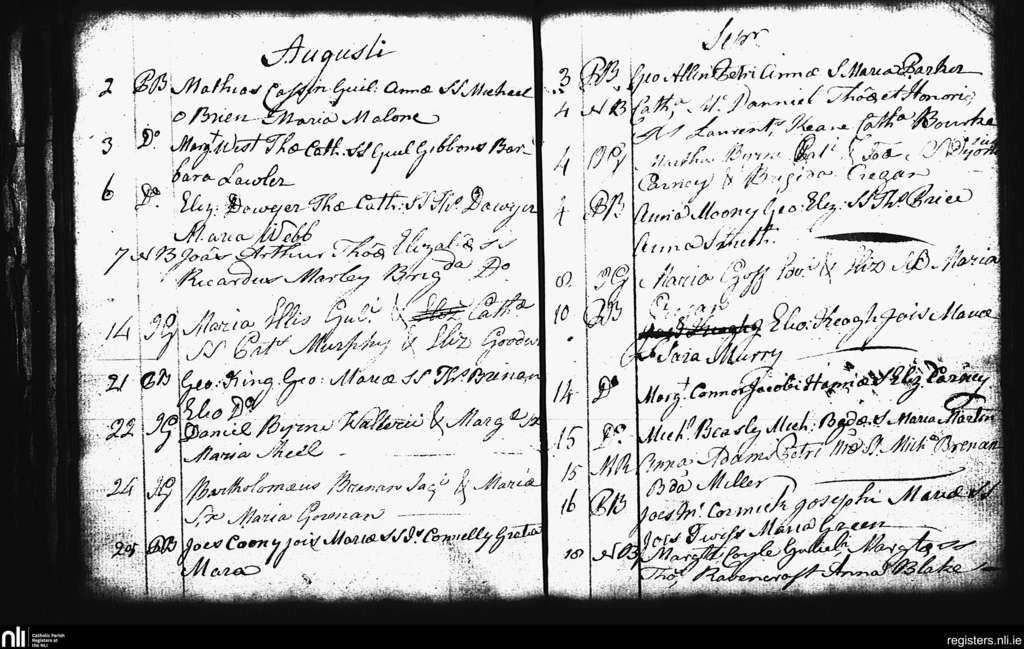 Augusti
2 PB Mathias Cassin Guil: Annæ SS Michael
O Brien Maria Malone
3 Do Margt West Thæ Cath: SS Guil Gibbons Bar-
bara Lawler
6 Do Eliz: Dowyer Thæ Cath: SS Ths Dowyer
Maria Webb
7 NB Joās Arthur Thōæ Elizabæ SS
Ricardus Marley Brigda Do
14 JG Maria Ellis Gul: & Cathæ
SS Murphy & Eliz Goodwin
21 PB Geo: King Geo: Mariæ SS Ths Brenan
Eliz Do
22 JG Daniel Byrne & Marg
Maria
24 JG Bartholomæus Brenan Jaci & Mariæ
Sx Maria Gownan
29 PB Joes Coony Jois Mariæ SS Js Connelly Gratia
Mara
Sepr
3 PB Geo Allin Petri Annæ S Maria Parker
4 NB Catha Mc Danniel Thōæ et Honoriæ
SS Laurents Keane Catha Bourke
4 JG Byrne & SS
Carney & Brigida Cregan
4 PB Anna Mooney Geo: Eliz: SS Ths Brice
Anna Smith.
8 JG Maria Goff & Eliz Maria
10 PB Eliz: Keagh Jois Mariæ
Sara Murry
14 Do Margt Connor Jacobi Hannæ S Eliz Carney
15 Do Michl Beasley Mich: Bgdæ S Maria Martin
15 MR Anna Adams Petri Mæ Sp. Michl Brenan
Bda Miller
16 PB Joes Mc Cormick Josephi Mariæ SS
Joes Twiss Maria Green
18 NB Margta Coyle Gulieli Margta SS
Thos Ravencroft Anna Blake
nli Catholic Parish
Registers at
the NLI
registers.nli.ie